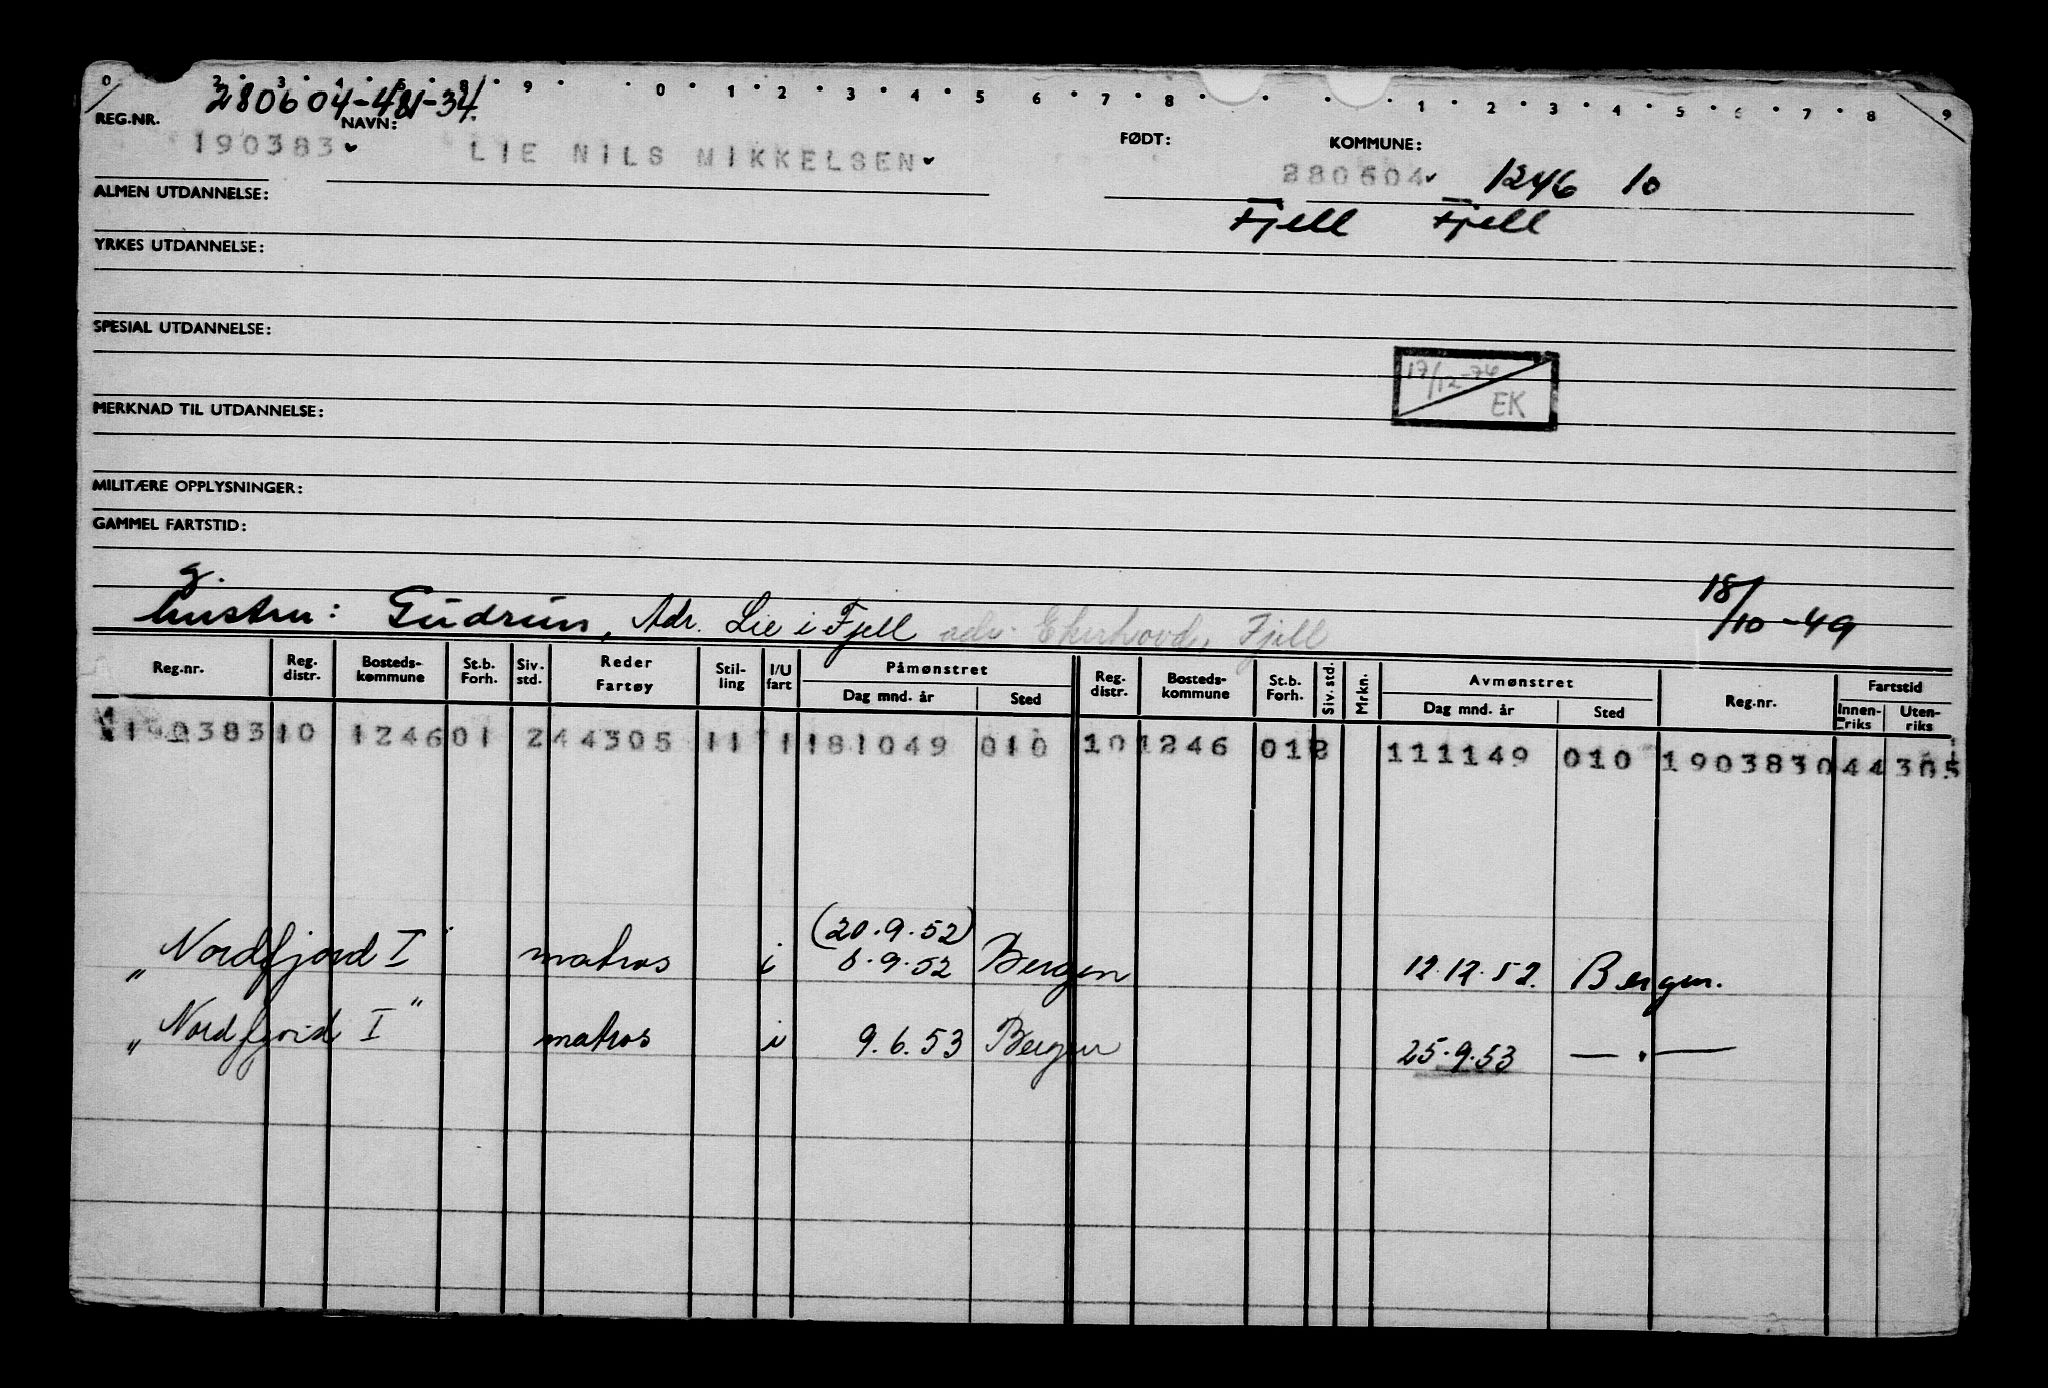 0 2 3 4 5 8 9 0 1 2 3 4 5 6 7 8 1 2 3 4 5 6 7 8 9
280604-481-34.
REG.NR. NAVN: FØDT: KOMMUNE:
190383 LIE NILS MIKKELSEN 280604 1246 10
ALMEN UTDANNELSE: Fjell Fjell
YRKES UTDANNELSE:
SPESIAL UTDANNELSE:
17/12-76
EK
MERKNAD TIL UTDANNELSE:
MILITÆRE OPPLYSNINGER:
GAMMEL FARTSTID:
g. 18/10-49
hustru: Gudrun, Adr. Lie i Fjell adr. Ekerhovde, Fjell
Reg.nr. Reg. distr. Bosteds-kommune St.b. Forh. Siv. std. Reder Fartøy Stil-ling I/U fart Påmønstret Dag mnd. år Sted Reg. distr. Bosteds-kommune St.b. Forh. Siv. std. Mrkn. Avmønstret Dag mnd. år Sted Reg.nr. Fartstid Innen-riks Uten-riks
190383 10 1246 01 2 44305 11 1 181049 010 10 1246 01 2 111149 010 190383 0 44 305
(20.9.52)
„Nordfjord I" matros i 8.9.52 Bergen 12.12.52. Bergen.
„Nordfjord I" matros i 9.6.53 Bergen 25.9.53 — „ —